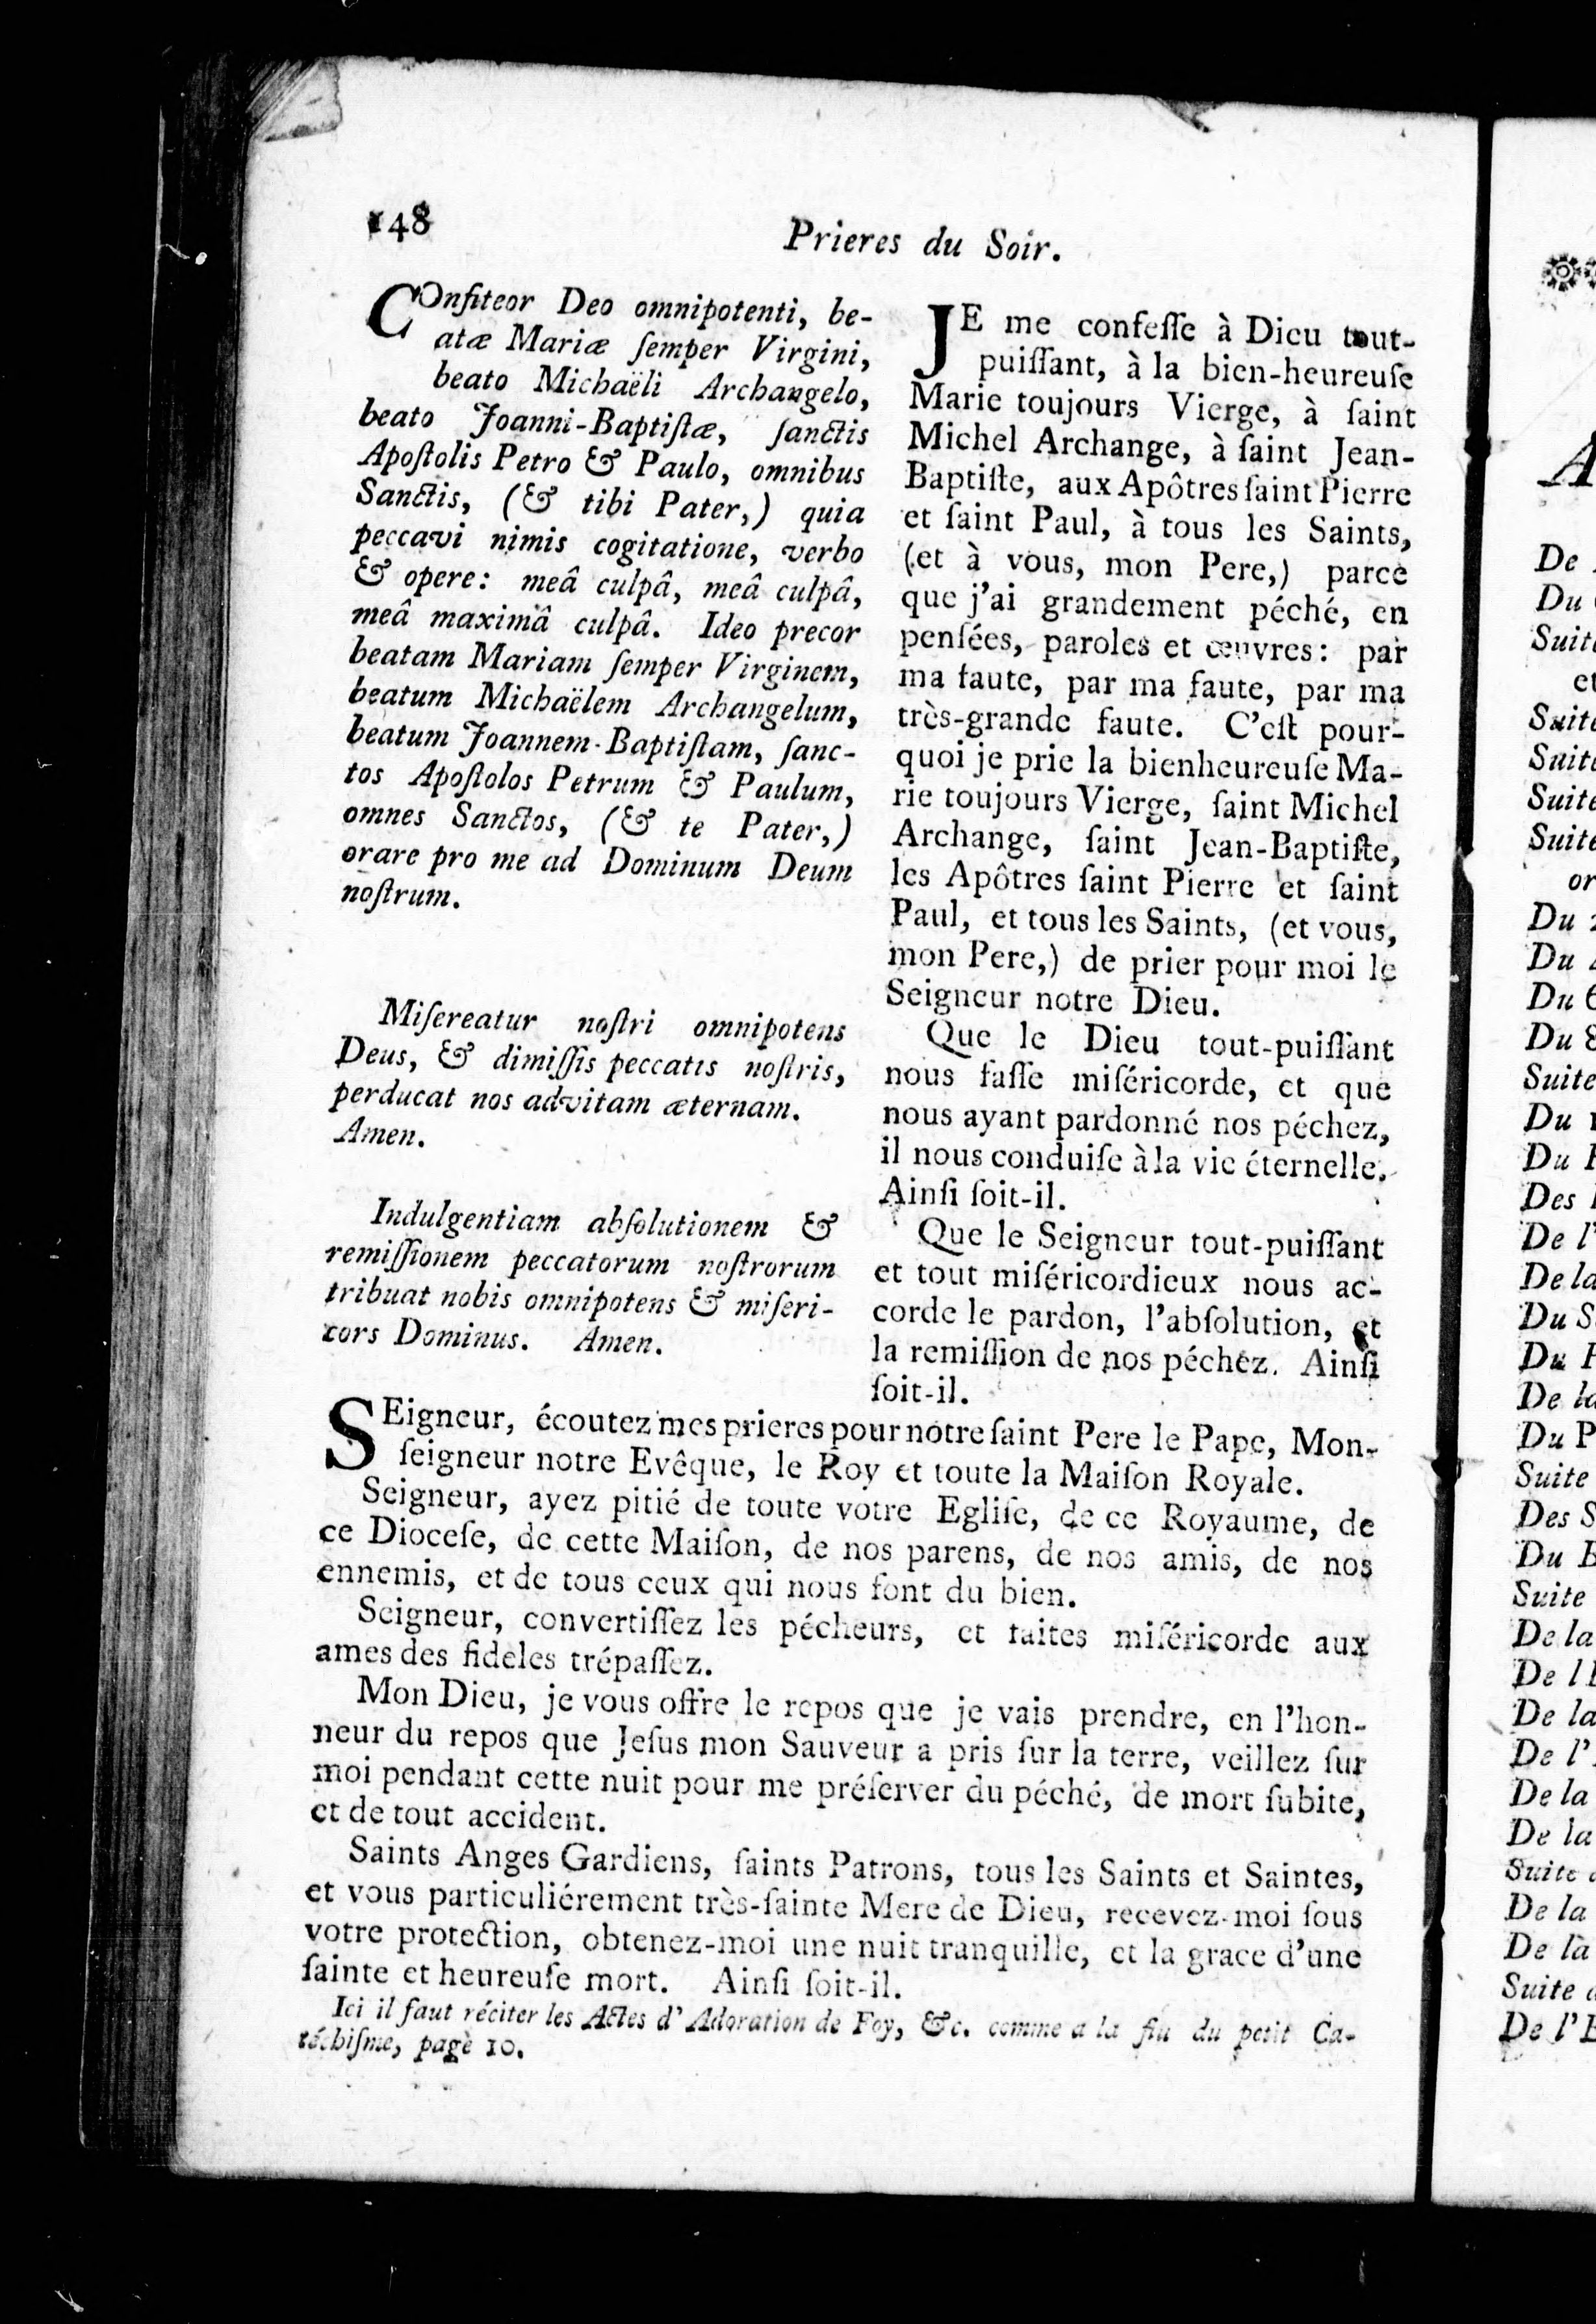 148
Prieres du Soir.
COnfiteor Deo omnipotenti, be-
atæ Mariæ ſemper Virgini,
beato Michaëli Archangelo,
beato Joanni-Baptiſtæ, ſanctis
Apoſtolis Petro & Paulo, omnibus
Sanctis, (& tibi Pater,) quia
peccavi nimis cogitatione, verbo
& opere: meâ culpâ, meâ culpâ,
meâ maximâ culpâ. Ideo precor
beatam Mariam ſemper Virginem,
beatum Michaëlem Archangelum,
beatum Joannem-Baptiſtam, ſanc-
tos Apoſtolos Petrum & Paulum,
omnes Sanctos, (& te Pater,)
orare pro me ad Dominum Deum
noſtrum.
Miſereatur noſtri omnipotens
Deus, & dimiſſis peccatis noſtris,
perducat nos advitam æternam.
Amen.
Indulgentiam abſolutionem &
remiſſionem peccatorum noſtrorum
tribuat nobis omnipotens & miſeri-
cors Dominus. Amen.
JE me confeſſe à Dieu tout-
puiſſant, à la bien-heureuſe
Marie toujours Vierge, à ſaint
Michel Archange, à ſaint Jean-
Baptiſte, aux Apôtres ſaint Pierre
et ſaint Paul, à tous les Saints,
(et à vous, mon Pere,) parce
que j'ai grandement péché, en
penſées, paroles et œuvres: par
ma faute, par ma faute, par ma
très-grande faute. C'eſt pour-
quoi je prie la bienheureuſe Ma-
rie toujours Vierge, ſaint Michel
Archange, ſaint Jean-Baptiſte,
les Apôtres ſaint Pierre et ſaint
Paul, et tous les Saints, (et vous,
mon Pere,) de prier pour moi le
Seigneur notre Dieu.
Que le Dieu tout-puiſſant
nous faſſe miſéricorde, et que
nous ayant pardonné nos péchez,
il nous conduiſe à la vie éternelle.
Ainſi ſoit-il.
Que le Seigneur tout-puiſſant
et tout miſéricordieux nous ac-
corde le pardon, l'abſolution, et
la remiſſion de nos péchez. Ainſi
ſoit-il.
SEigneur, écoutez mes prieres pour notre ſaint Pere le Pape, Mon-
ſeigneur notre Evêque, le Roy et toute la Maiſon Royale.
Seigneur, ayez pitié de toute votre Egliſe, de ce Royaume, de
ce Dioceſe, de cette Maiſon, de nos parens, de nos amis, de nos
ennemis, et de tous ceux qui nous font du bien.
Seigneur, convertiſſez les pécheurs, et faites miſéricorde aux
ames des fideles trépaſſez.
Mon Dieu, je vous offre le repos que je vais prendre, en l'hon-
neur du repos que Jeſus mon Sauveur a pris ſur la terre, veillez ſur
moi pendant cette nuit pour me préſerver du péché, de mort ſubite,
et de tout accident.
Saints Anges Gardiens, ſaints Patrons, tous les Saints et Saintes,
et vous particuliérement très-ſainte Mere de Dieu, recevez-moi ſous
votre protection, obtenez-moi une nuit tranquille, et la grace d'une
ſainte et heureuſe mort. Ainſi ſoit-il.
Ici il faut réciter les Actes d'Adoration de Foy, &c. comme a la fin du petit Ca-
téchiſme, page 10.
A
De
Du
Suite
et
Suite
Suite
Suite
Suite
or
Du 2
Du
Du 6
Du 8
Suite
Du
Du
Des
De l'
De la
Du S
Du
De la
Du P
Suite
Des S
Du
Suite
De la
De l
De la
De l'
De la
De la
Suite
De la
De la
Suite
De l'